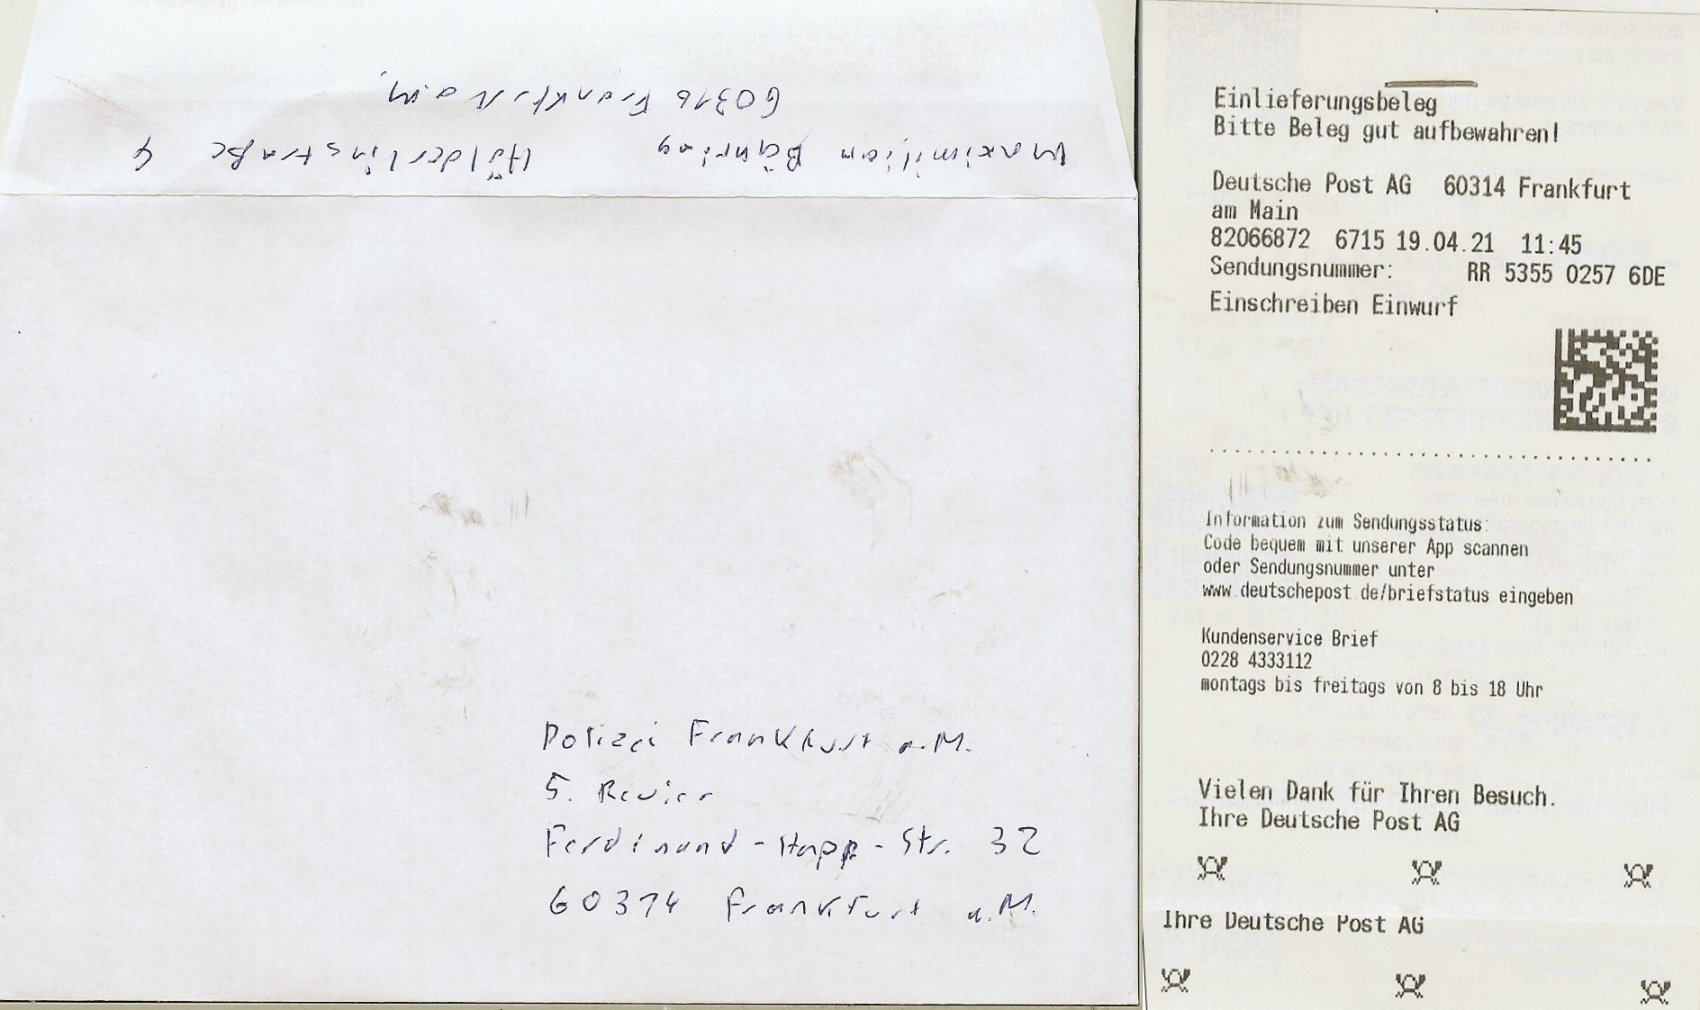 Maximilian Bähring Hölderlinstraße 4
60316 Frankft. Main
Polizei Frankfurt a.M.
5. Revier
Ferdinand-Happ-Str. 32
60314 Frankfurt a.M.
Einlieferungsbeleg
Bitte Beleg gut aufbewahren!
Deutsche Post AG 60314 Frankfurt
am Main
82066872 6715 19.04.21 11:45
Sendungsnummer: RR 5355 0257 6DE
Einschreiben Einwurf
Information zum Sendungsstatus:
Code bequem mit unserer App scannen
oder Sendungsnummer unter
www.deutschepost.de/briefstatus eingeben
Kundenservice Brief
0228 4333112
montags bis freitags von 8 bis 18 Uhr
Vielen Dank für Ihren Besuch.
Ihre Deutsche Post AG
Ihre Deutsche Post AG